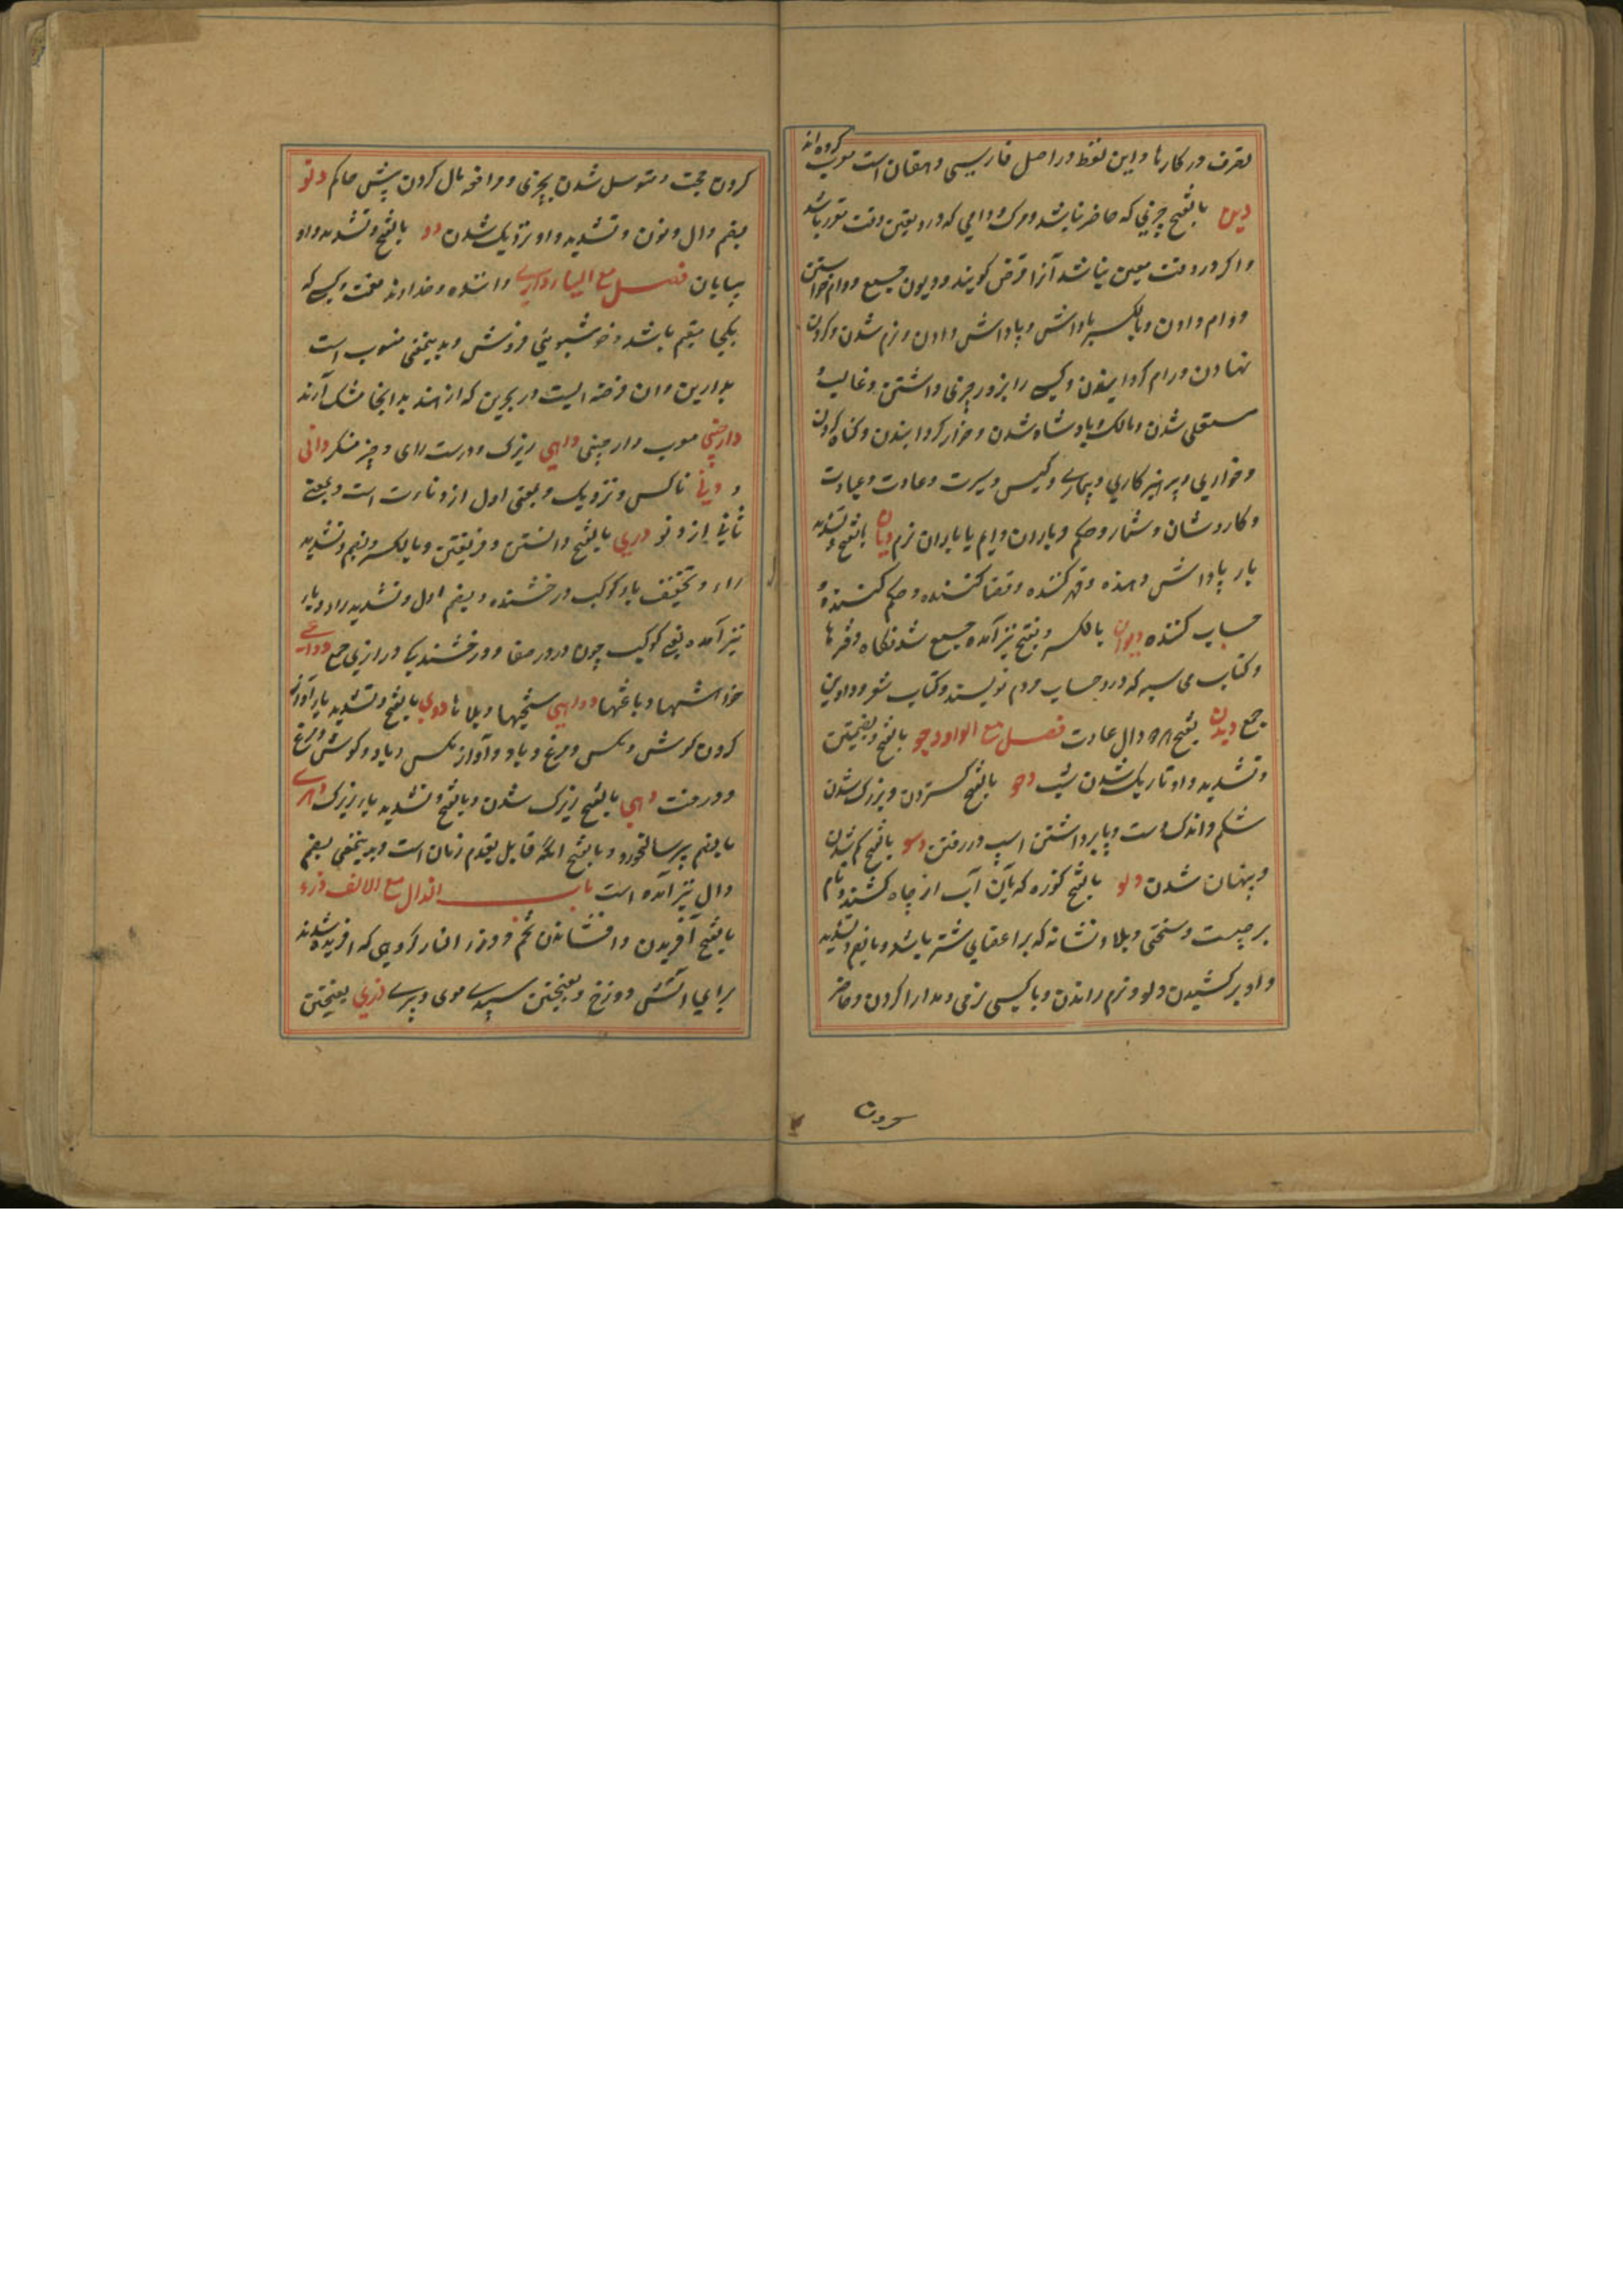 تصرف در کارها و این لفظ در اصل فارسیی دهقان است معرب کرده اند
دین بالفتح چیزیی که حاضر نباشد و مرک و وامی که درو یقین وقت مقرر باشد
و اکر درو وقت معین نباشد آنرا قرض کویند و دیون جمع و وام خواستن
و وام دادن و بالکسر پاداش و پاداش دادن و نرم شدن و کردن
نهادن و رام کردانیدن و کسی را بزور چیزی داشتن و غالب و
مستعلی شدن و مالک و پادشاه شدن و خوار کردانیدن و کناه کردن
و خواریی و پرهیزکاریی و بیماریی و کیش و سیرت و عادت و عبادت
و کار و شان و شمار و حکم و باران دایم یا باران نرم دیان بالفتح و تشدید
یار پاداش دهنده و قهر کننده و قضا کننده و حکم کننده و
حساب کننده دیوان بالکسر و بفتح نیز آمده جمع شدنکاه دفترها
و کتاب می سبه که درو حساب مردم نویسند و کتاب شعر و دواوین
جمع دیدن بفتح هر دو دال عادت فصل مع الواو دجو بالفتح و بضمتین
و تشدید واو تاریک شدن شب دحو بالفتح کستردن و بزرک شدن
شکم و اندک دست و پا برداشتن اسپ در رفتن دسو بالفتح کم شدن
و پنهان شدن دلو بالفتح کوزه که بآن آب از چاه کشند و نام
برجیست و سختی و بلا و نشانه که بر اعضایی شتر باشد و بالضم و تشدید
واو بر کشیدن دلو و نرم راندن و با کسیی نرمی و مدارا کردن و حاضر
کردن
کردن حجت و متوسل شدن بچیزی و مرافعه مال کردن پیش حاکم دنو
بضم دال و نون و تشدید واو نزدیک شدن دو بالفتح و تشدید واو
بیابان فصل مع الیاء داریی داننده و خداوند نعمت و کسی که
یکجا مقیم باشد و خوشبویی فروش و بدینمعنی منسوب است
بدارین و ان فرضه ایست در بحرین که از هند بدانجا مشک آرند
دارچینی معرب دارچینی داهی زیرک و درست رای و چیز منکر دانی
و دنی ناکس و نزدیک و بمعنی اول از دناءت است و بمعنی
ثانی از دنو دری بالفتح دانستن و فریفتن و بالکسر و بضم و تشدید
راء و تخفیف یاء کوکب درخشنده و بضم اول و تشدید راء و یاء
نیز آمده یعنی کوکب چون در در صفا و درخشندیکی و درازیی جمع دواعی
خواهشها و باعثها دواهی سختیها و بلاها دوی بالفتح و تشدید یاء آواز
کردن کوش و مکس و مرغ و باد و آواز مکس و باد و کوش و مرغ
و درخت دهی بالفتح زیرک شدن و بالفتح و تشدید یاء زیرک دهری
بالضم پیر سالخورده و بالفتح انکه قایل بقدم زمان است و بدینمعنی بضم
دال نیز آمده است باب الذال مع الالف ذرء
بالفتح آفریدن و افشاندن تخم و ذرء النار کروهی که آفریده شدند
برایی آتش دوزخ و بفتحتین سپیدیی موی و پیریی ذری بفتحتین